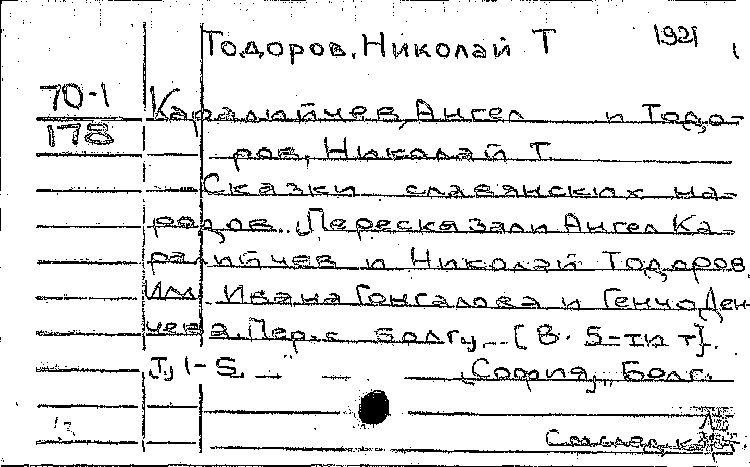 Тодоров, Николай Т 1921
70-1 Каралийчев, Ангел и Тодо-
178 ров, Николай Т.
Сказки славянских на-
родов. Пересказали Ангел Ка-
ралийчев и Николай Тодоров.
Илл Ивана Гонгалова и Генчо Ден-
чева. Пер. с Болг. [В. 5-ти т].
Т, 1-5. София, Болг.
См. след. к